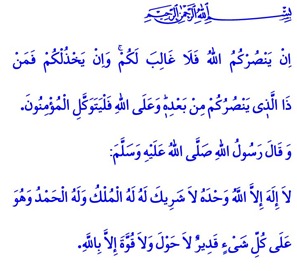 بِسْمِ اللهِ الرَّحْمٰنِ الرَّحِيمِ
اِنْ يَنْصُرْكُمُ اللهُ فَلَا غَالِبَ لَكُمْۚ وَاِنْ يَخْذُلْكُمْ فَمَنْ
ذَا الَّذ۪ي يَنْصُرُكُمْ مِنْ بَعْدِه۪ۜ وَعَلَى اللهِ فَلْيَتَوَكَّلِ الْمُؤْمِنُونَ.
وَ قَالَ رَسُولُ اللهِ صَلَّى اللهُ عَلَيْهِ وَسَلَّمَ:
لاَ إِلَهَ إِلاَّ اللَّهُ وَحْدَهُ لاَ شَرِيكَ لَهُ لَهُ الْمُلْكُ وَلَهُ الْحَمْدُ وَهُوَ
عَلَى كُلِّ شَىْءٍ قَدِيرٌ لاَ حَوْلَ وَلاَ قُوَّةَ إِلاَّ بِاللَّهِ.